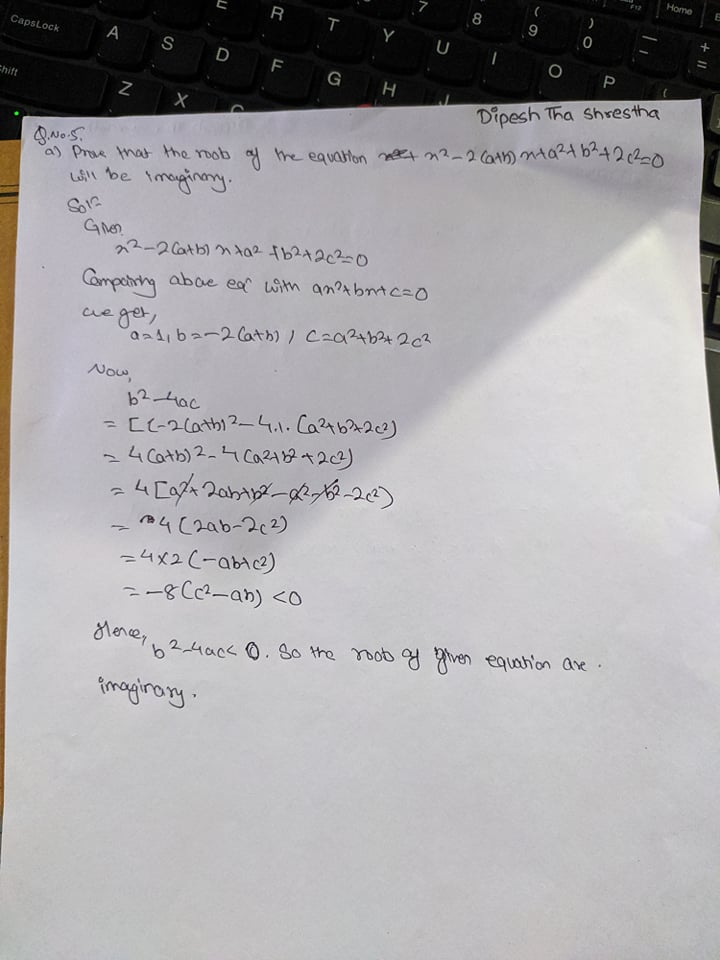 CapsLock
E R T Y U I O P
7 8 ( 9 ) 0 — + =
F12 Home
A S D F G H J
Shift Z X C
Dipesh Jha Shrestha
Q.No.5.
a) Prove that the roots of the equation x²-2(a+b)x+a²+b²+2c²=0
will be imaginary.
Solⁿ
Given
x²-2(a+b)x+a²+b²+2c²=0
Comparing above eqⁿ with ax²+bx+c=0
we get,
a=1, b=-2(a+b), c=a²+b²+2c²
Now,
b²-4ac
= [(-2(a+b)²-4.1.(a²+b²+2c²)
= 4(a+b)²-4(a²+b²+2c²)
= 4[a²+2ab+b²-a²-b²-2c²)
= 4(2ab-2c²)
=4×2(-ab+c²)
= -8(c²-ab) <0
Hence,
b²-4ac< 0. So the roots of given equation are.
imaginary.